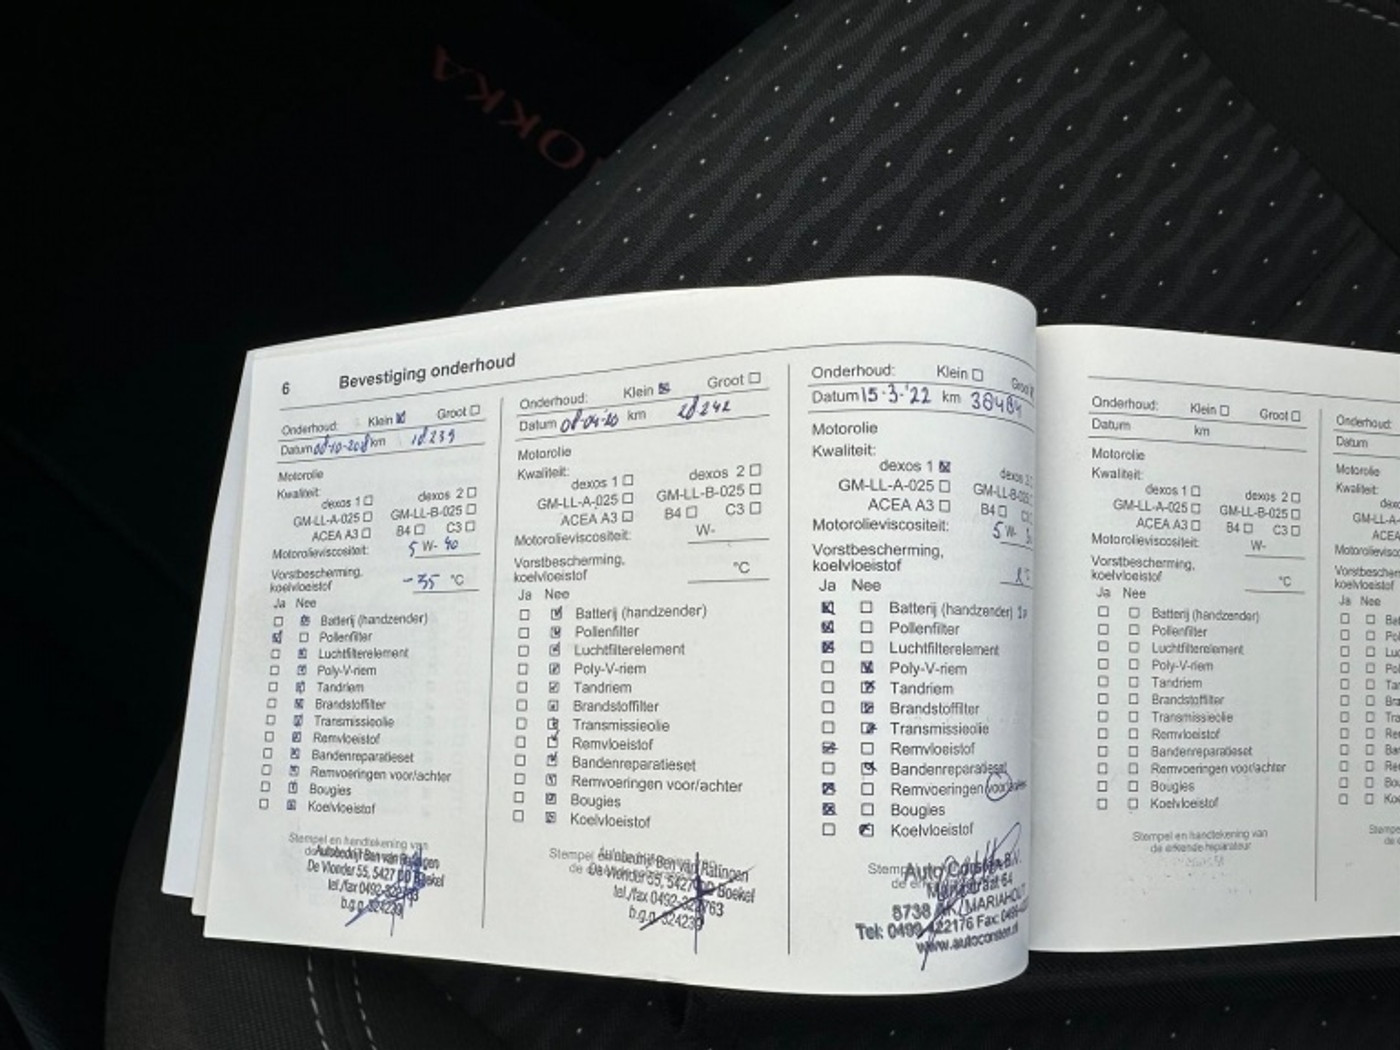 MOKKA
6 Bevestiging onderhoud
Onderhoud: Klein Groot
Datum km 18239
Motorolie
Kwaliteit:
dexos 1 dexos 2
GM-LL-A-025 GM-LL-B-025
ACEA A3 B4 C3
Motorolieviscositeit: 5 W- 40
Vorstbescherming,
koelvloeistof -35 °C
Ja Nee
Batterij (handzender)
Pollenfilter
Luchtfilterelement
Poly-V-riem
Tandriem
Brandstoffilter
Transmissieolie
Remvloeistof
Bandenreparatieset
Remvoeringen voor/achter
Bougies
Koelvloeistof
Stempel en handtekening van
Autobedrijf Ben van Ratingen
De Vlonder 55, 5427 DD Boekel
tel./fax 0492-322763
b.g.g. 324239
Onderhoud: Klein Groot
Datum 08-04-20 km 28242
Motorolie
Kwaliteit:
dexos 1 dexos 2
GM-LL-A-025 GM-LL-B-025
ACEA A3 B4 C3
Motorolieviscositeit: W-
Vorstbescherming,
koelvloeistof °C
Ja Nee
Batterij (handzender)
Pollenfilter
Luchtfilterelement
Poly-V-riem
Tandriem
Brandstoffilter
Transmissieolie
Remvloeistof
Bandenreparatieset
Remvoeringen voor/achter
Bougies
Koelvloeistof
Stempel
Autobedrijf Ben van Ratingen
De Vlonder 55, 5427 DD Boekel
tel./fax 0492-322763
b.g.g. 324239
Onderhoud: Klein
Datum 15-3-'22 km 38484
Motorolie
Kwaliteit:
dexos 1
GM-LL-A-025 GM-LL-B-025
ACEA A3 B4
Motorolieviscositeit: 5 W-
Vorstbescherming,
koelvloeistof
Ja Nee
Batterij (handzender)
Pollenfilter
Luchtfilterelement
Poly-V-riem
Tandriem
Brandstoffilter
Transmissieolie
Remvloeistof
Bandenreparatieset
Remvoeringen voor/achter
Bougies
Koelvloeistof
Auto Corsten B.V.
64
5738 AK MARIAHOUT
Tel: 0499-422176 Fax:
www.autocorsten.nl
Onderhoud: Klein Groot
Datum km
Motorolie
Kwaliteit:
dexos 1 dexos 2
GM-LL-A-025 GM-LL-B-025
ACEA A3 B4 C3
Motorolieviscositeit: W-
Vorstbescherming,
koelvloeistof °C
Ja Nee
Batterij (handzender)
Pollenfilter
Luchtfilterelement
Poly-V-riem
Tandriem
Brandstoffilter
Transmissieolie
Remvloeistof
Bandenreparatieset
Remvoeringen voor/achter
Bougies
Koelvloeistof
Stempel en handtekening van
de erkende reparateur
Onderhoud:
Datum
Motorolie
Kwaliteit:
Ja Nee